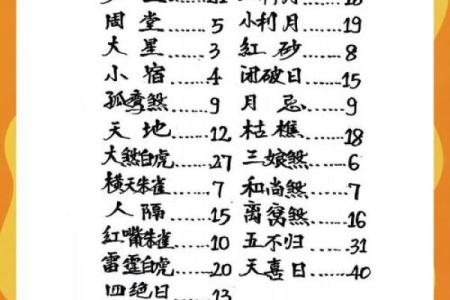 周堂......5 小利月......19
大星......3 紅砂......8
小宿......4 闭破日......15
孤鸾煞......9 月忌......9
天地......12 枯樵......18
大煞白虎......27 三娘煞......6
横天朱雀......7 和尚煞......7
人隔......15 离窝煞......16
红嘴朱雀......10 五不归......31
雷霆白虎......20 天喜日......40
四绝日......13